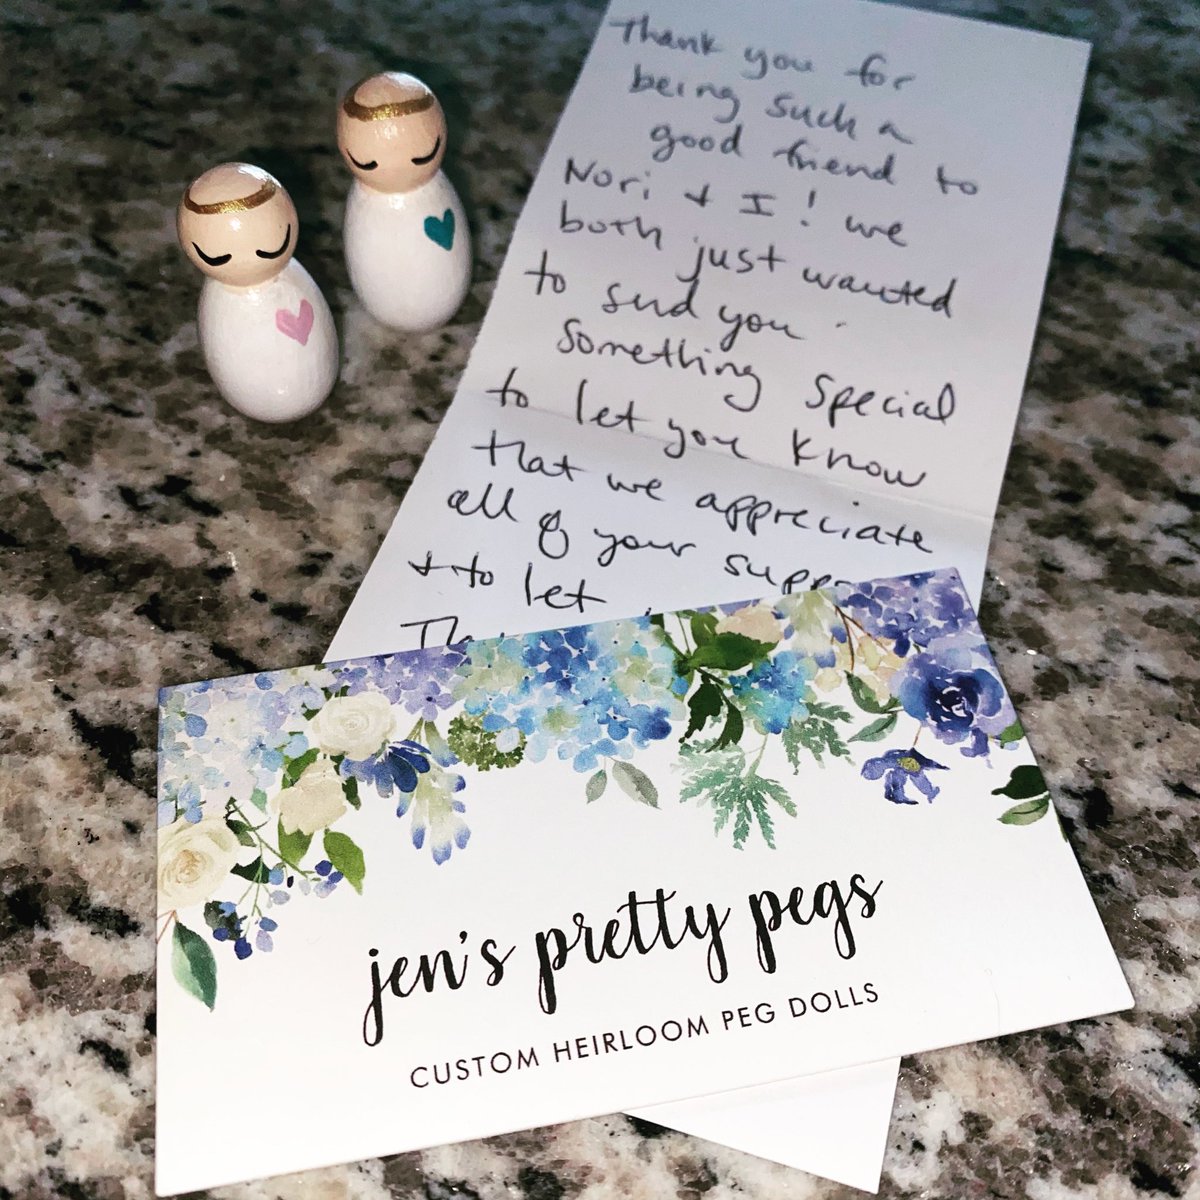 Thank you for
being such a
good friend to
Nori & I! we
both just wanted
to send you
something special
to let you know
that we appreciate
all of your
& to let
jen's pretty pegs
CUSTOM HEIRLOOM PEG DOLLS